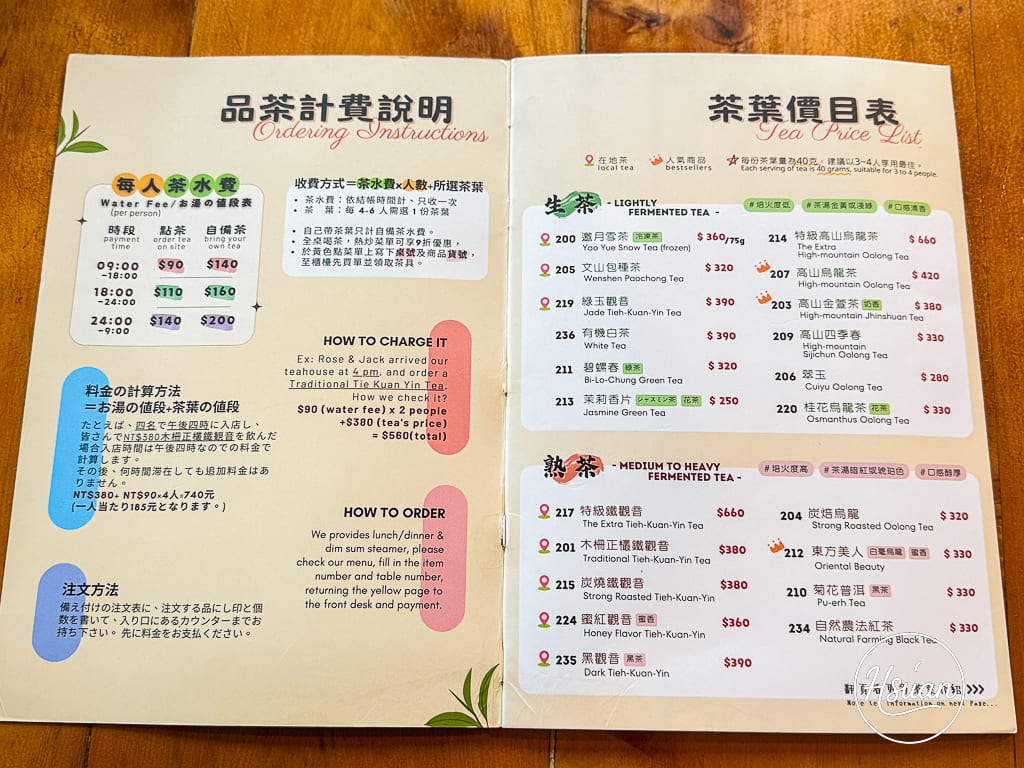 品茶計費說明
Ordering Instructions
每人茶水費
Water Fee/お湯の値段表
(per person)
時段 點茶 自備茶
payment time order tea on site bring your own tea
09:00 -18:00 $90 $140
18:00 -24:00 $110 $160
24:00 -9:00 $140 $200
收費方式=茶水費x人數+所選茶葉
• 茶水費:依結帳時間計、只收一次
• 茶 葉:每 4-6 人需選 1 份茶葉
• 自己帶茶葉只計自備茶水費。
• 全桌喝茶,熱炒菜單可享9折優惠,
• 於黃色點菜單上寫下桌號及商品貨號,
至櫃檯先買單並領取茶具。
HOW TO CHARGE IT
Ex: Rose & Jack arrived our
teahouse at 4 pm, and order a
Traditional Tie Kuan Yin Tea.
How we check it?
$90 (water fee) x 2 people
+$380 (tea's price)
= $560(total)
料金の計算方法
=お湯の値段+茶葉の値段
たとえば、四名で午後四時に入店し、
皆さんでNT$380木柵正欉鐵觀音を飲んだ
場合入店時間は午後四時なのでの料金で
計算します。
その後、何時間滞在しても追加料金はあ
りません。
NT$380+ NT$90×4人=740元
(一人当たり185元となります。)
HOW TO ORDER
We provides lunch/dinner &
dim sum steamer, please
check our menu, fill in the item
number and table number,
returning the yellow page to
the front desk and payment.
注文方法
備え付けの注文表に、注文する品にし印と個
数を書いて、入り口にあるカウンターまでお
持ち下さい。 先に料金をお支払ください。
茶葉價目表
Tea Price List
在地茶 local tea
人氣商品 bestsellers
每份茶葉量為40克,建議以3~4人享用最佳。
Each serving of tea is 40 grams, suitable for 3 to 4 people.
生茶 - LIGHTLY FERMENTED TEA -
#焙火度低 #茶湯金黃或淺綠 #口感清香
200 邀月雪茶 冷凍茶 $ 360/75g
Yao Yue Snow Tea (frozen)
205 文山包種茶 $ 320
Wenshen Paochong Tea
219 綠玉觀音 $ 390
Jade Tieh-Kuan-Yin Tea
236 有機白茶 $ 390
White Tea
211 碧螺春 綠茶 $ 320
Bi-Lo-Chung Green Tea
213 茉莉香片 ジャスミン茶 花茶 $ 250
Jasmine Green Tea
214 特級高山烏龍茶 $ 660
The Extra
High-mountain Oolong Tea
207 高山烏龍茶 $ 420
High-mountain Oolong Tea
203 高山金萱茶 奶香 $ 380
High-mountain Jhinshuan Tea
209 高山四季春 $ 330
High-mountain
Sijichun Oolong Tea
206 翠玉 $ 280
Cuiyu Oolong Tea
220 桂花烏龍茶 花茶 $ 330
Osmanthus Oolong Tea
熟茶 - MEDIUM TO HEAVY FERMENTED TEA -
#焙火度高 #茶湯暗紅或琥珀色 #口感醇厚
217 特級鐵觀音 $660
The Extra Tieh-Kuan-Yin Tea
201 木柵正欉鐵觀音 $380
Traditional Tieh-Kuan-Yin Tea
215 炭燒鐵觀音 $380
Strong Roasted Tieh-Kuan-Yin
224 蜜紅觀音 蜜香 $360
Honey Flavor Tieh-Kuan-Yin
235 黑觀音 黑茶 $390
Dark Tieh-Kuan-Yin
204 炭焙烏龍 $ 320
Strong Roasted Oolong Tea
212 東方美人 白毫烏龍 蜜香 $ 330
Oriental Beauty
210 菊花普洱 黑茶 $ 330
Pu-erh Tea
234 自然農法紅茶 $ 330
Natural Farming Black Tea
More tea information on next Page...
Hsuan